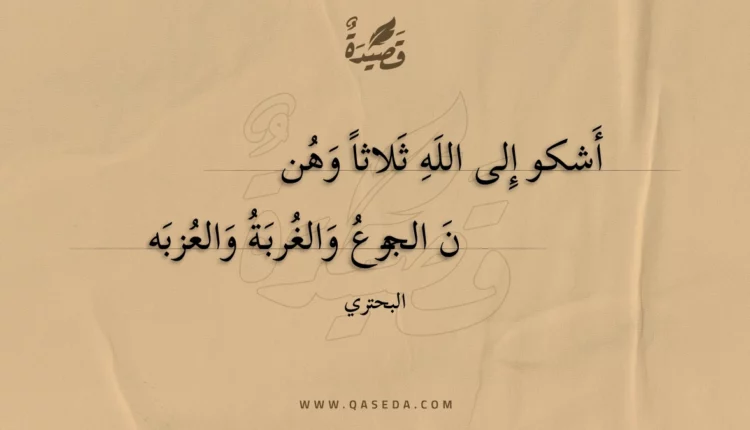 قَصِيدَةٌ
أَشكو إِلى اللَهِ ثَلاثاً وَهُن
نَ الجوعُ وَالغُربَةُ وَالعُزبَه
البحتري
WWW.QASEDA.COM